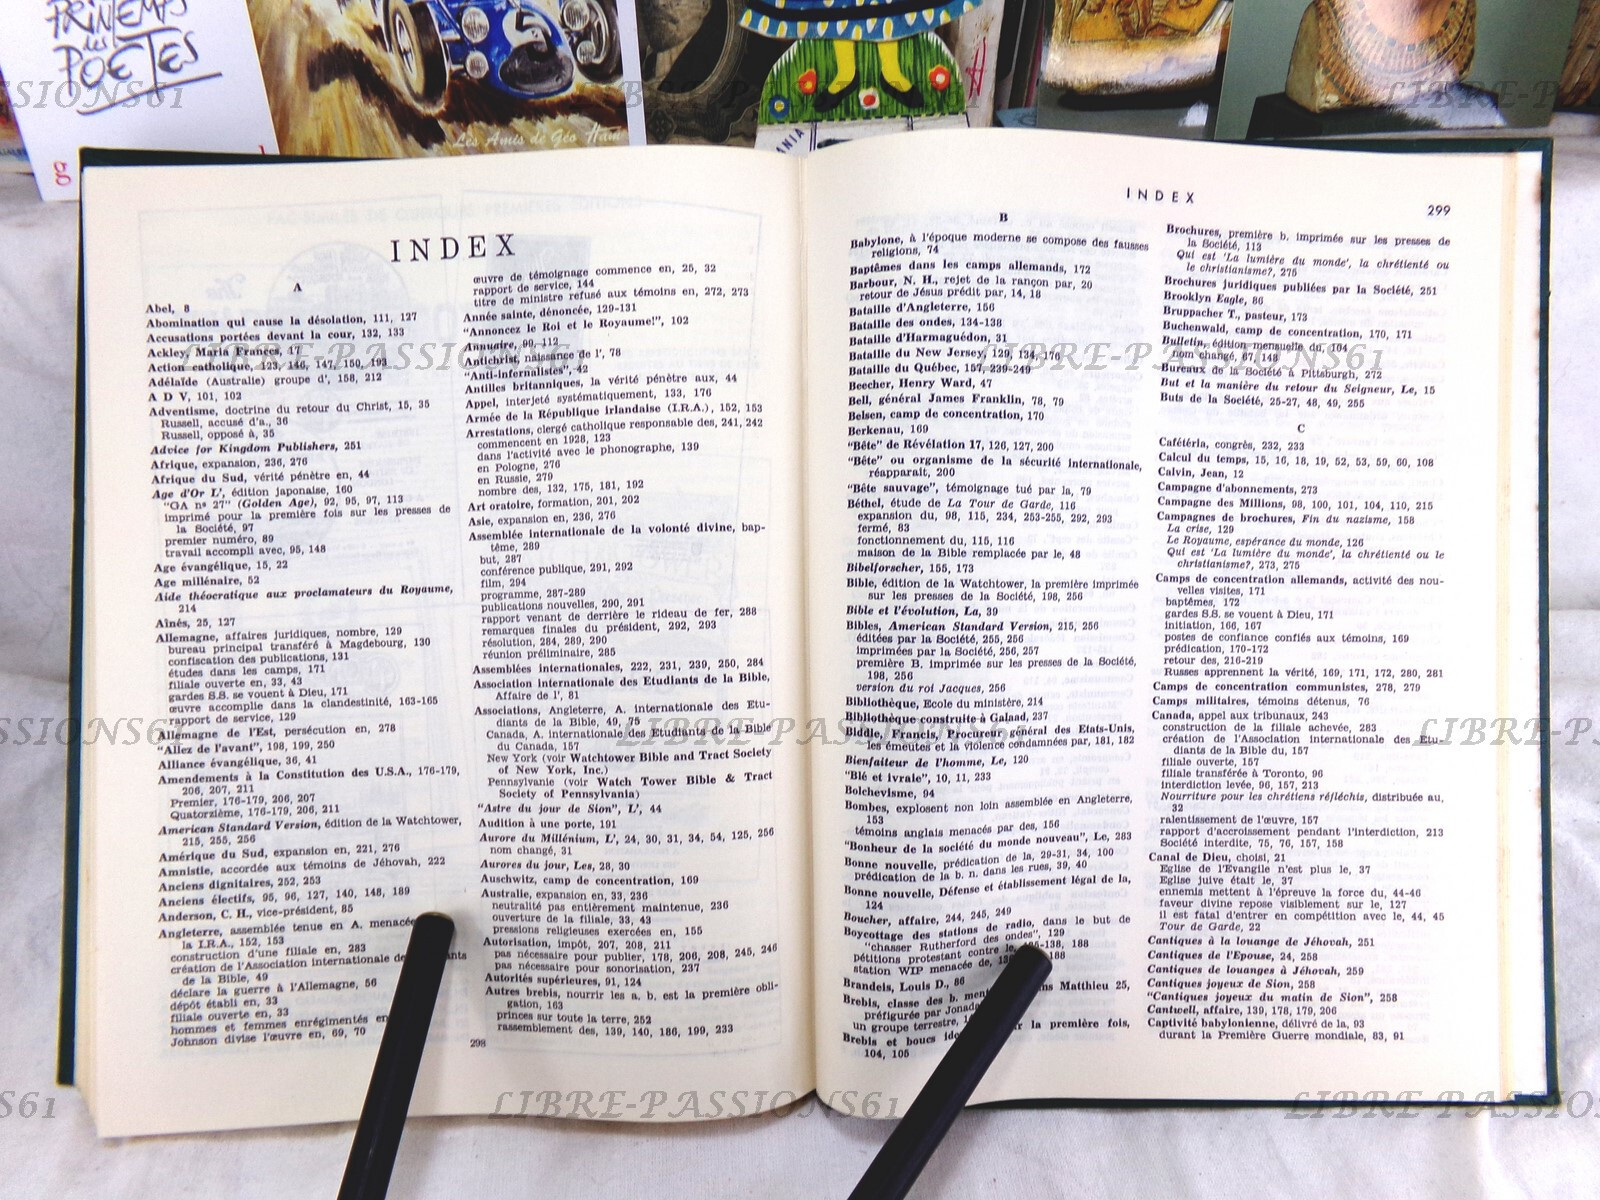 PRINTEMPS
des
POETES
g
Les Amis de Géo Ham
LIBRE-PASSIONS61
INDEX
A
Abel, 8
Abomination qui cause la désolation, 111, 127
Accusations portées devant la cour, 132, 133
Ackley, Maria Frances, 17
Action catholique, 123, 146, 147, 150, 193
Adélaïde (Australie) groupe d', 158, 212
A D V, 101, 102
Adventisme, doctrine du retour du Christ, 15, 35
Russell, accusé d'a., 36
Russell, opposé à, 35
Advice for Kingdom Publishers, 251
Afrique, expansion, 236, 276
Afrique du Sud, vérité pénètre en, 44
Age d'Or L', édition japonaise, 160
"GA nº 27" (Golden Age), 92, 95, 97, 113
imprimé pour la première fois sur les presses de
la Société, 97
premier numéro, 89
travail accompli avec, 95, 148
Age évangélique, 15, 22
Age millénaire, 52
Aide théocratique aux proclamateurs du Royaume,
214
Aînés, 25, 127
Allemagne, affaires juridiques, nombre, 129
bureau principal transféré à Magdebourg, 130
confiscation des publications, 131
études dans les camps, 171
filiale ouverte en, 33, 43
gardes S.S. se vouent à Dieu, 171
œuvre accomplie dans la clandestinité, 163-165
rapport de service, 129
Allemagne de l'Est, persécution en, 278
"Allez de l'avant", 198, 199, 250
Alliance évangélique, 36, 41
Amendements à la Constitution des U.S.A., 176-179,
206, 207, 211
Premier, 176-179, 206, 207
Quatorzième, 176-179, 206, 211
American Standard Version, édition de la Watchtower,
215, 255, 256
Amérique du Sud, expansion en, 221, 276
Amnistie, accordée aux témoins de Jéhovah, 222
Anciens dignitaires, 252, 253
Anciens électifs, 95, 96, 127, 140, 148, 189
Anderson, C. H., vice-président, 85
Angleterre, assemblée tenue en A. menacée
la I.R.A., 152, 153
construction d'une filiale en, 283
création de l'Association internationale de
de la Bible, 49
déclare la guerre à l'Allemagne, 56
dépôt établi en, 33
filiale ouverte en, 33
hommes et femmes enrégimentés en
Johnson divise l'œuvre en, 69, 70
œuvre de témoignage commence en, 25, 32
rapport de service, 144
titre de ministre refusé aux témoins en, 272, 273
Année sainte, dénoncée, 129-131
"Annoncez le Roi et le Royaume!", 102
Annuaire, 99, 112
Antichrist, naissance de l', 78
"Anti-infernalistes", 42
Antilles britanniques, la vérité pénètre aux, 44
Appel, interjeté systématiquement, 133, 176
Armée de la République irlandaise (I.R.A.), 152, 153
Arrestations, clergé catholique responsable des, 241, 242
commencent en 1928, 123
dans l'activité avec le phonographe, 139
en Pologne, 276
en Russie, 279
nombre des, 132, 175, 181, 192
Art oratoire, formation, 201, 202
Asie, expansion en, 236, 276
Assemblée internationale de la volonté divine, bap-
tême, 289
but, 287
conférence publique, 291, 292
film, 294
programme, 287-289
publications nouvelles, 290, 291
rapport venant de derrière le rideau de fer, 288
remarques finales du président, 292, 293
résolution, 284, 289, 290
réunion préliminaire, 285
Assemblées internationales, 222, 231, 239, 250, 284
Association internationale des Etudiants de la Bible,
Affaire de l', 81
Associations, Angleterre, A. internationale des Etu-
diants de la Bible, 49, 75
Canada, A. internationale des Etudiants de la Bible
du Canada, 157
New York (voir Watchtower Bible and Tract Society
of New York, Inc.)
Pennsylvania (voir Watch Tower Bible & Tract
Society of Pennsylvania)
"Astre du jour de Sion", L', 44
Audition à une porte, 191
Aurore du Millénium, L', 24, 30, 31, 34, 54, 125, 256
nom changé, 31
Aurores du jour, Les, 28, 30
Auschwitz, camp de concentration, 169
Australie, expansion en, 33, 236
neutralité pas entièrement maintenue, 236
ouverture de la filiale, 33, 43
pressions religieuses exercées en, 155
Autorisation, impôt, 207, 208, 211
pas nécessaire pour publier, 178, 206, 208, 245, 246
pas nécessaire pour sonorisation, 237
Autorités supérieures, 91, 124
Autres brebis, nourrir les a. b. est la première obli-
gation, 163
princes sur toute la terre, 252
rassemblement des, 139, 140, 186, 199, 233
298
INDEX
299
B
Babylone, à l'époque moderne se compose des fausses
religions, 74
Baptêmes dans les camps allemands, 172
Barbour, N. H., rejet de la rançon par, 20
retour de Jésus prédit par, 14, 18
Bataille d'Angleterre, 156
Bataille des ondes, 134-138
Bataille d'Harmaguédon, 31
Bataille du New Jersey, 129, 134, 176
Bataille du Québec, 157, 239-249
Beecher, Henry Ward, 47
Bell, général James Franklin, 78, 79
Belsen, camp de concentration, 170
Berkenau, 169
"Bête" de Révélation 17, 126, 127, 200
"Bête" ou organisme de la sécurité internationale,
réapparait, 200
"Bête sauvage", témoignage tué par la, 79
Béthel, étude de La Tour de Garde, 116
expansion du, 98, 115, 234, 253-255, 292, 293
fermé, 83
fonctionnement du, 115, 116
maison de la Bible remplacée par le, 48
Bibelforscher, 155, 173
Bible, édition de la Watchtower, la première imprimée
sur les presses de la Société, 198, 256
Bible et l'évolution, La, 39
Bibles, American Standard Version, 215, 256
éditées par la Société, 255, 256
imprimées par la Société, 256, 257
première B. imprimée sur les presses de la Société,
198, 256
version du roi Jacques, 256
Bibliothèque, Ecole du ministère, 214
Bibliothèque construite à Galaad, 237
Biddle, Francis, Procureur général des Etats-Unis,
les émeutes et la violence condamnées par, 181, 182
Bienfaiteur de l'homme, Le, 120
"Blé et ivraie", 10, 11, 233
Bolchevisme, 94
Bombes, explosent non loin assemblée en Angleterre,
153
témoins anglais menacés par des, 156
"Bonheur de la société du monde nouveau", Le, 283
Bonne nouvelle, prédication de la, 29-31, 34, 100
prédication de la b. n. dans les rues, 39, 40
Bonne nouvelle, Défense et établissement légal de la,
124
Boucher, affaire, 244, 245, 249
Boycottage des stations de radio, dans le but de
"chasser Rutherford des ondes", 129
pétitions protestant contre le, -138, 188
station WIP menacée de, 188
Brandeis, Louis D., 86
Brebis, classe des b. Matthieu 25,
préfigurée par
un groupe terrestre, la première fois,
Brebis et boucs
104, 105
Brochures, première b. imprimée sur les presses de
la Société, 113
Qui est 'La lumière du monde', la chrétienté ou
le christianisme?, 275
Brochures juridiques publiées par la Société, 251
Brooklyn Eagle, 86
Bruppacher T., pasteur, 173
Buchenwald, camp de concentration, 170, 171
Bulletin, édition mensuelle du, 164
nom changé, 67, 148
Bureaux de la Société à Pittsburgh, 272
But et la manière du retour du Seigneur, Le, 15
Buts de la Société, 25-27, 48, 49, 255
C
Cafétéria, congrès, 232, 233
Calcul du temps, 15, 16, 18, 19, 52, 53, 59, 60, 108
Calvin, Jean, 12
Campagne d'abonnements, 273
Campagne des Millions, 98, 100, 101, 104, 110, 215
Campagnes de brochures, Fin du nazisme, 158
La crise, 129
Le Royaume, espérance du monde, 126
Qui est 'La lumière du monde', la chrétienté ou le
christianisme?, 273, 275
Camps de concentration allemands, activité des nou-
velles visites, 171
baptêmes, 172
gardes S.S. se vouent à Dieu, 171
initiation, 166, 167
postes de confiance confiés aux témoins, 169
prédication, 170-172
retour des, 216-219
Russes apprennent la vérité, 169, 171, 172, 280, 281
Camps de concentration communistes, 278, 279
Camps militaires, témoins détenus, 76
Canada, appel aux tribunaux, 243
construction de la filiale achevée, 283
création de l'Association internationale des Etu-
diants de la Bible du, 157
filiale ouverte, 157
filiale transférée à Toronto, 96
interdiction levée, 96, 157, 213
Nourriture pour les chrétiens réfléchis, distribuée au,
32
ralentissement de l'œuvre, 157
rapport d'accroissement pendant l'interdiction, 213
Société interdite, 75, 76, 157, 158
Canal de Dieu, choisi, 21
Eglise de l'Evangile n'est plus le, 37
Eglise juive était le, 37
ennemis mettent à l'épreuve la force du, 44-46
faveur divine repose visiblement sur le, 127
il est fatal d'entrer en compétition avec le, 44, 45
Tour de Garde, 22
Cantiques à la louange de Jéhovah, 251
Cantiques de l'Epouse, 24, 258
Cantiques de louanges à Jéhovah, 259
Cantiques joyeux de Sion, 258
"Cantiques joyeux du matin de Sion", 258
Cantwell, affaire, 139, 178, 179, 206
Captivité babylonienne, délivré de la, 93
durant la Première Guerre mondiale, 83, 91